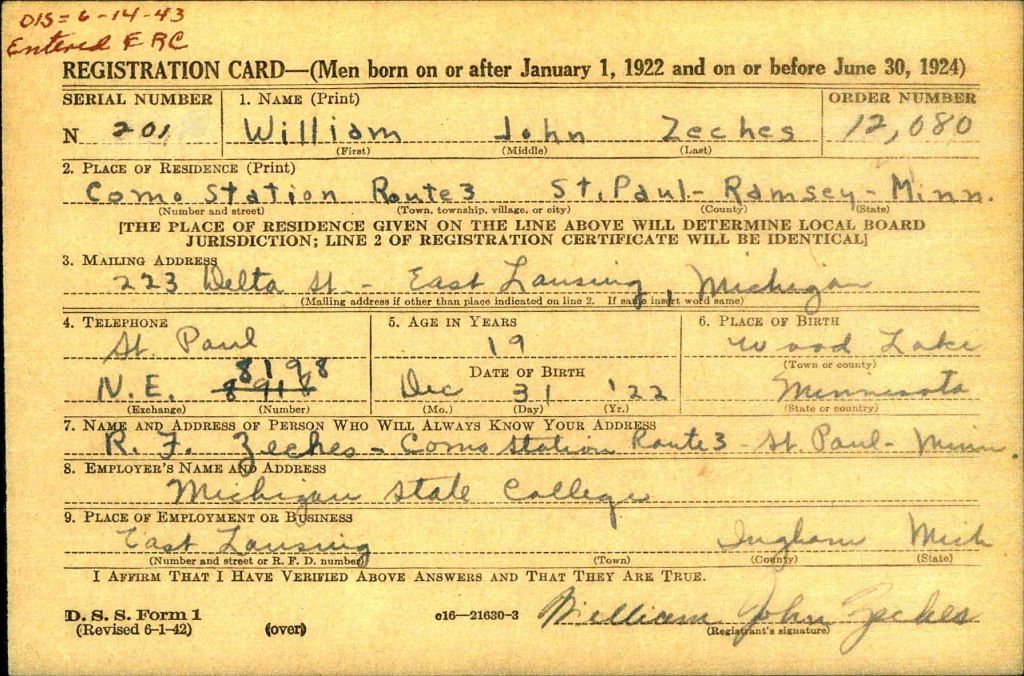 DIS = 6-14-43
Entered ERC
REGISTRATION CARD—(Men born on or after January 1, 1922 and on or before June 30, 1924)
SERIAL NUMBER 1. NAME (Print) ORDER NUMBER
N 201 William John Zeches 12,080
(First) (Middle) (Last)
2. PLACE OF RESIDENCE (Print)
Como Station Route 3 St. Paul - Ramsey - Minn.
(Number and street) (Town, township, village, or city) (County) (State)
[THE PLACE OF RESIDENCE GIVEN ON THE LINE ABOVE WILL DETERMINE LOCAL BOARD
JURISDICTION; LINE 2 OF REGISTRATION CERTIFICATE WILL BE IDENTICAL]
3. MAILING ADDRESS
223 Delta St. - East Lansing, Michigan
(Mailing address if other than place indicated on line 2. If same insert word same)
4. TELEPHONE 5. AGE IN YEARS 6. PLACE OF BIRTH
St. Paul 19 Wood Lake
(Town or county)
8198
DATE OF BIRTH
N.E. 8918 Dec 31 '22 Minnesota
(Exchange) (Number) (Mo.) (Day) (Yr.) (State or country)
7. NAME AND ADDRESS OF PERSON WHO WILL ALWAYS KNOW YOUR ADDRESS
R. F. Zeches - Como Station Route 3 - St. Paul - Minn.
8. EMPLOYER'S NAME AND ADDRESS
Michigan State College
9. PLACE OF EMPLOYMENT OR BUSINESS
East Lansing Ingham Mich
(Number and street or R. F. D. number) (Town) (County) (State)
I AFFIRM THAT I HAVE VERIFIED ABOVE ANSWERS AND THAT THEY ARE TRUE.
D. S. S. Form 1
(Revised 6-1-42) (over) o16—21630-3 William John Zeches
(Registrant's signature)